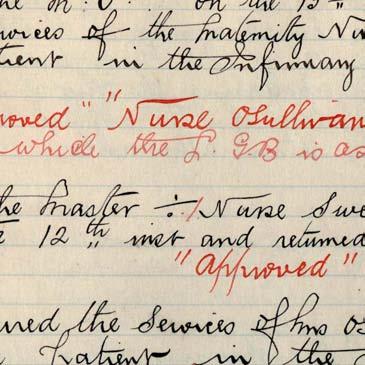 the M. O. on the 13th
rvices of the Maternity Nu
tient in the Infirmary
roved" "Nurse OSullivan
which the L. G. B is as
the Master ÷ Nurse Swe
12th inst and returned
"Approved"
ured the Services of Mrs Os
Patient in the